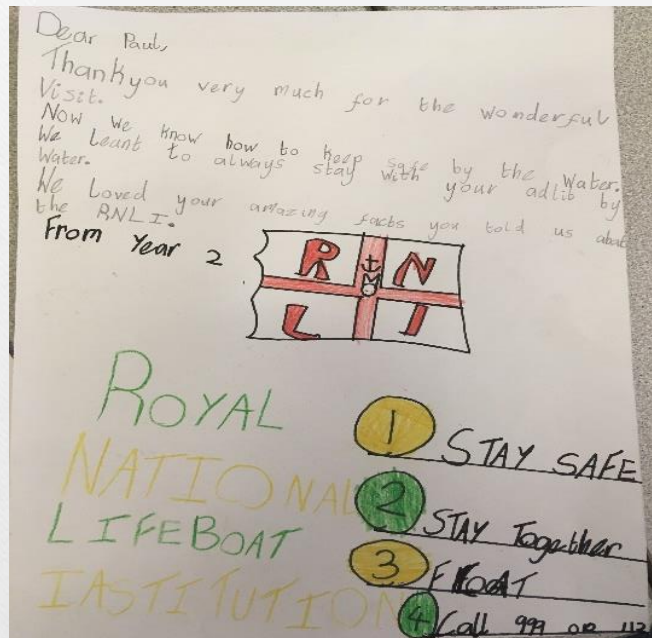 Dear Paul,
Thankyou very much for the wonderful
Visit.
Now we know how to keep safe by the water.
We Leant to always stay with your adlib by
Water.
We Loved your amazing facts you told us abat
the RNLI.
From Year 2
R N
L I
ROYAL
NATIONAL
LIFEBOAT
IASTITUTION
1 STAY SAFE
2 STAY Together
3 FLOAT
4 Call 999 or 112